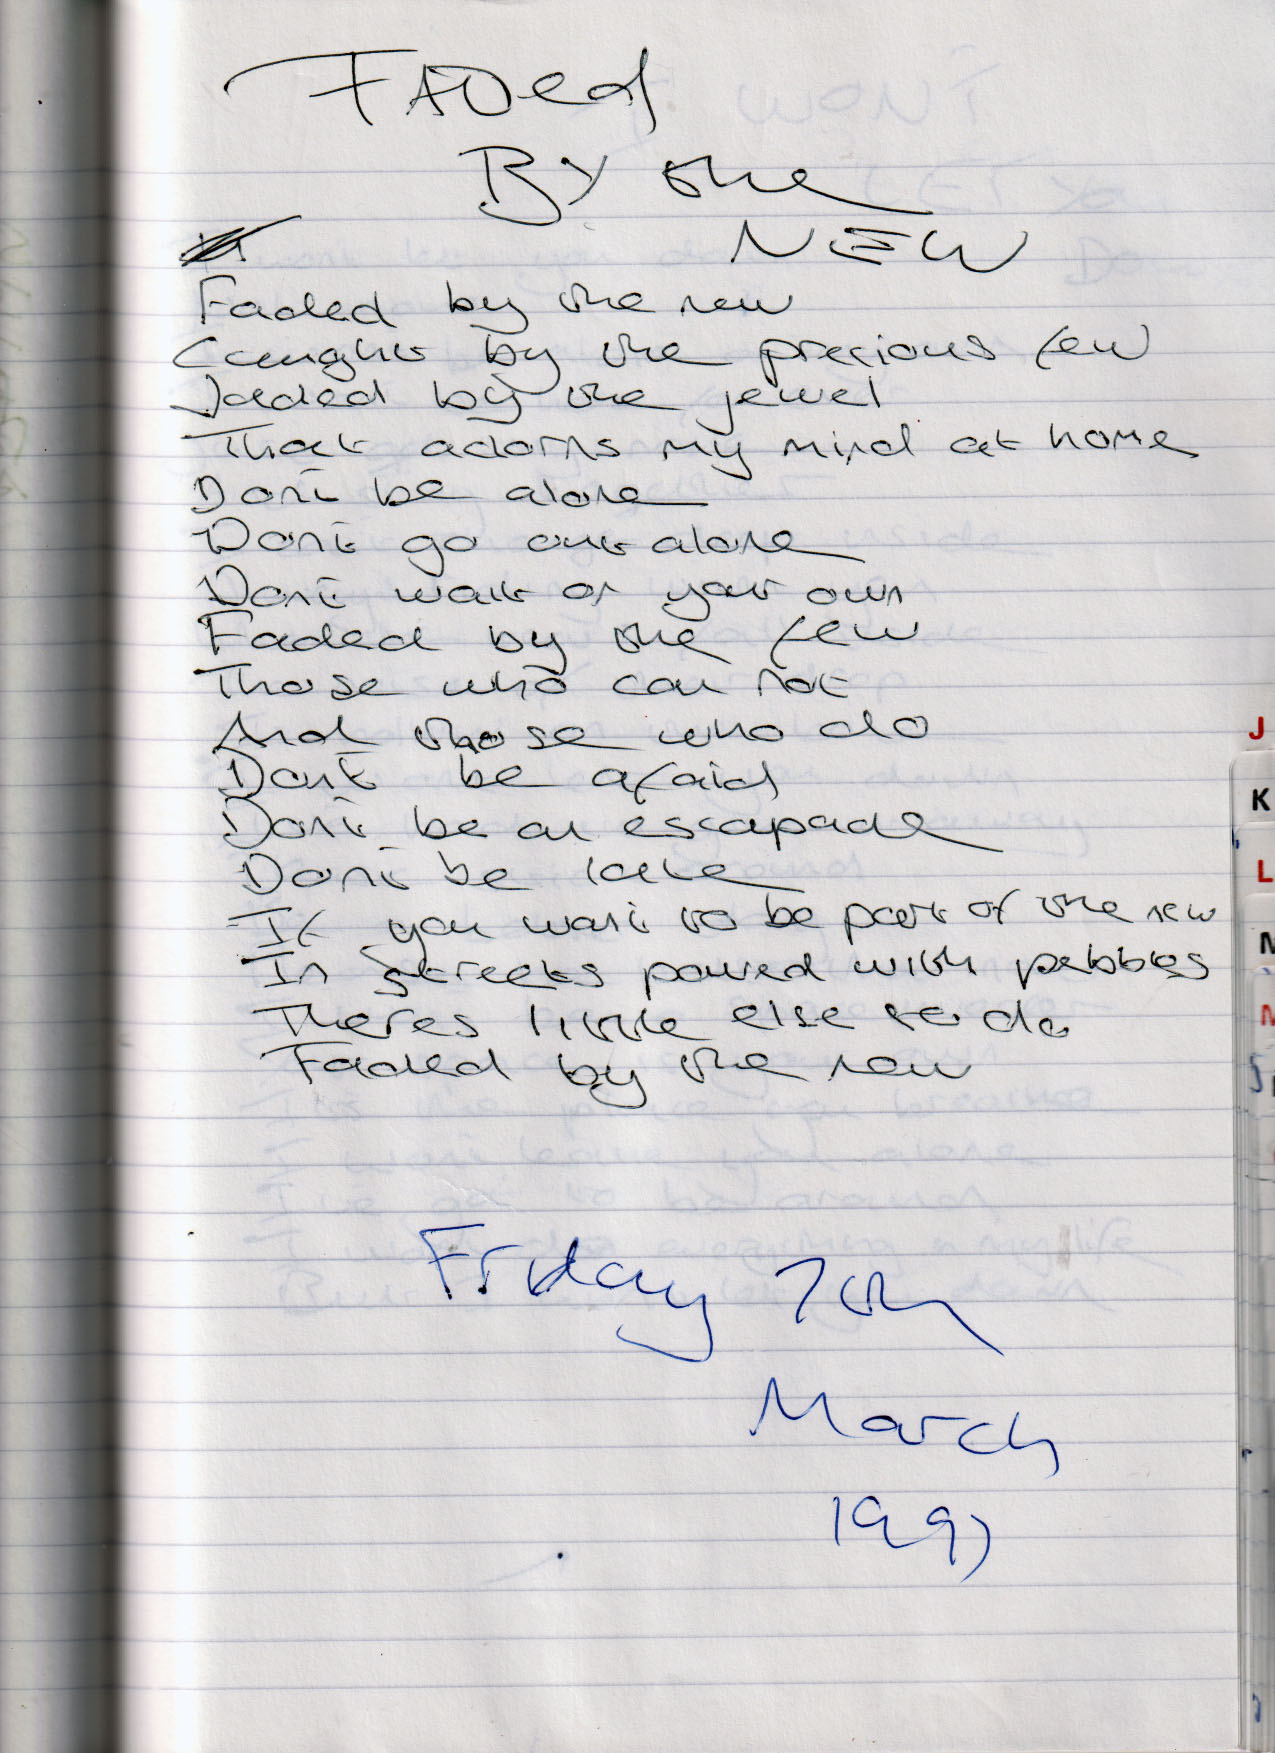 FADed
By the
NEW
Faded by the new
Caught by the precious few
Jaded by the jewel
That adorns my mind at home
Don't be alone
Don't go out alone
Don't wait on your own
Faded by the few
Those who can not
And those who do
Don't be afaid
Don't be an escapade
Don't be late
If you want to be part of the new
In streets paved with pebbles
Theres little else to do
Faded by the new
Friday 7th
March
1997
J
K
L
M